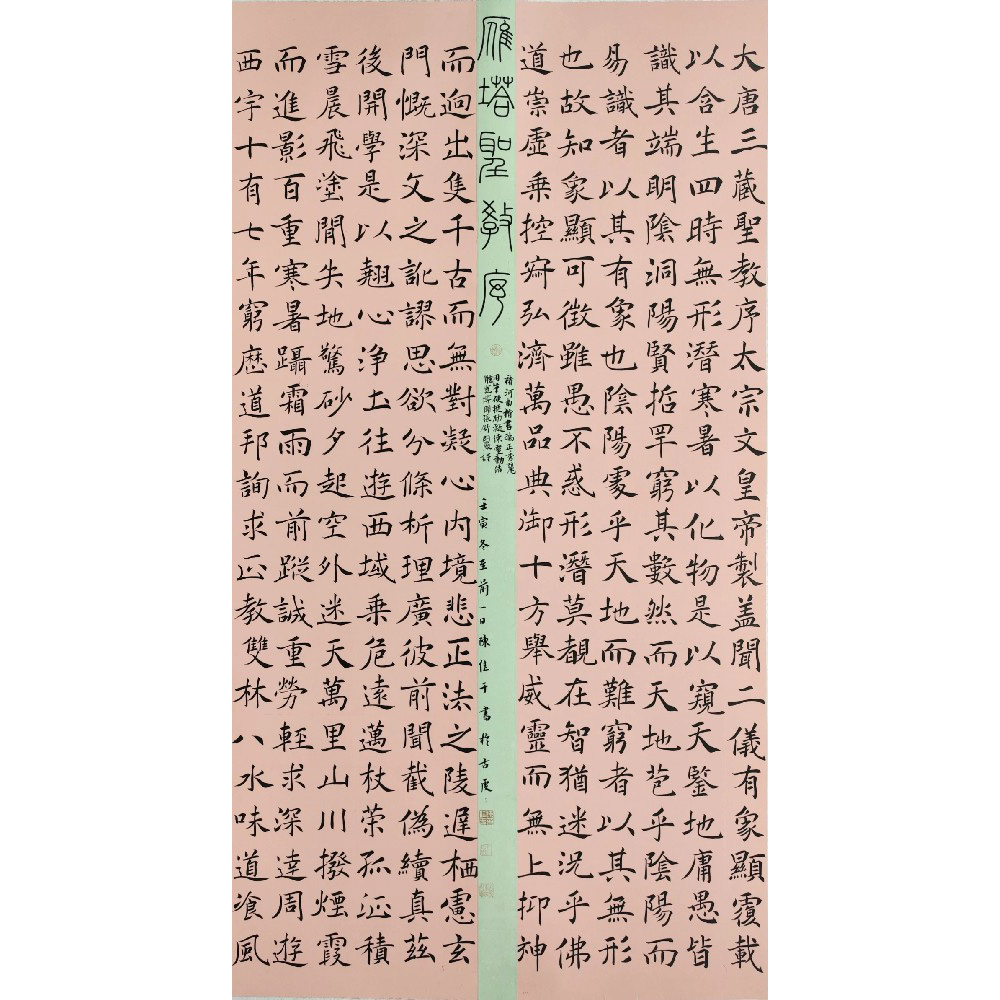 大唐三藏聖教序太宗文皇帝製盖聞二儀有象顯覆載
以含生四時無形潛寒暑以化物是以窺天鑒地庸愚皆
識其端明陰洞陽賢哲罕窮其數然而天地苞乎陰陽而
易識者以其有象也陰陽處乎天地而難窮者以其無形
也故知象顯可徵雖愚不惑形潛莫覩在智猶迷況乎佛
道崇虛乘控寂弘濟萬品典御十方舉威靈而無上抑神
雁塔聖教序
褚河南楷書端正秀麗
壬寅冬至前一日陳佳千書於古
而迥出隻千古而無對凝心內境悲正法之陵遲栖慮玄
門慨深文之訛謬思欲分條析理廣彼前聞截偽續真茲
後開學是以翹心浄土往遊西域乘危遠邁杖策孤征積
雪晨飛塗閒失地驚砂夕起空外迷天萬里山川撥煙霞
而進影百重寒暑躡霜雨而前蹤誠重勞輕求深達周遊
西宇十有七年窮歷道邦詢求正教雙林八水味道飡風